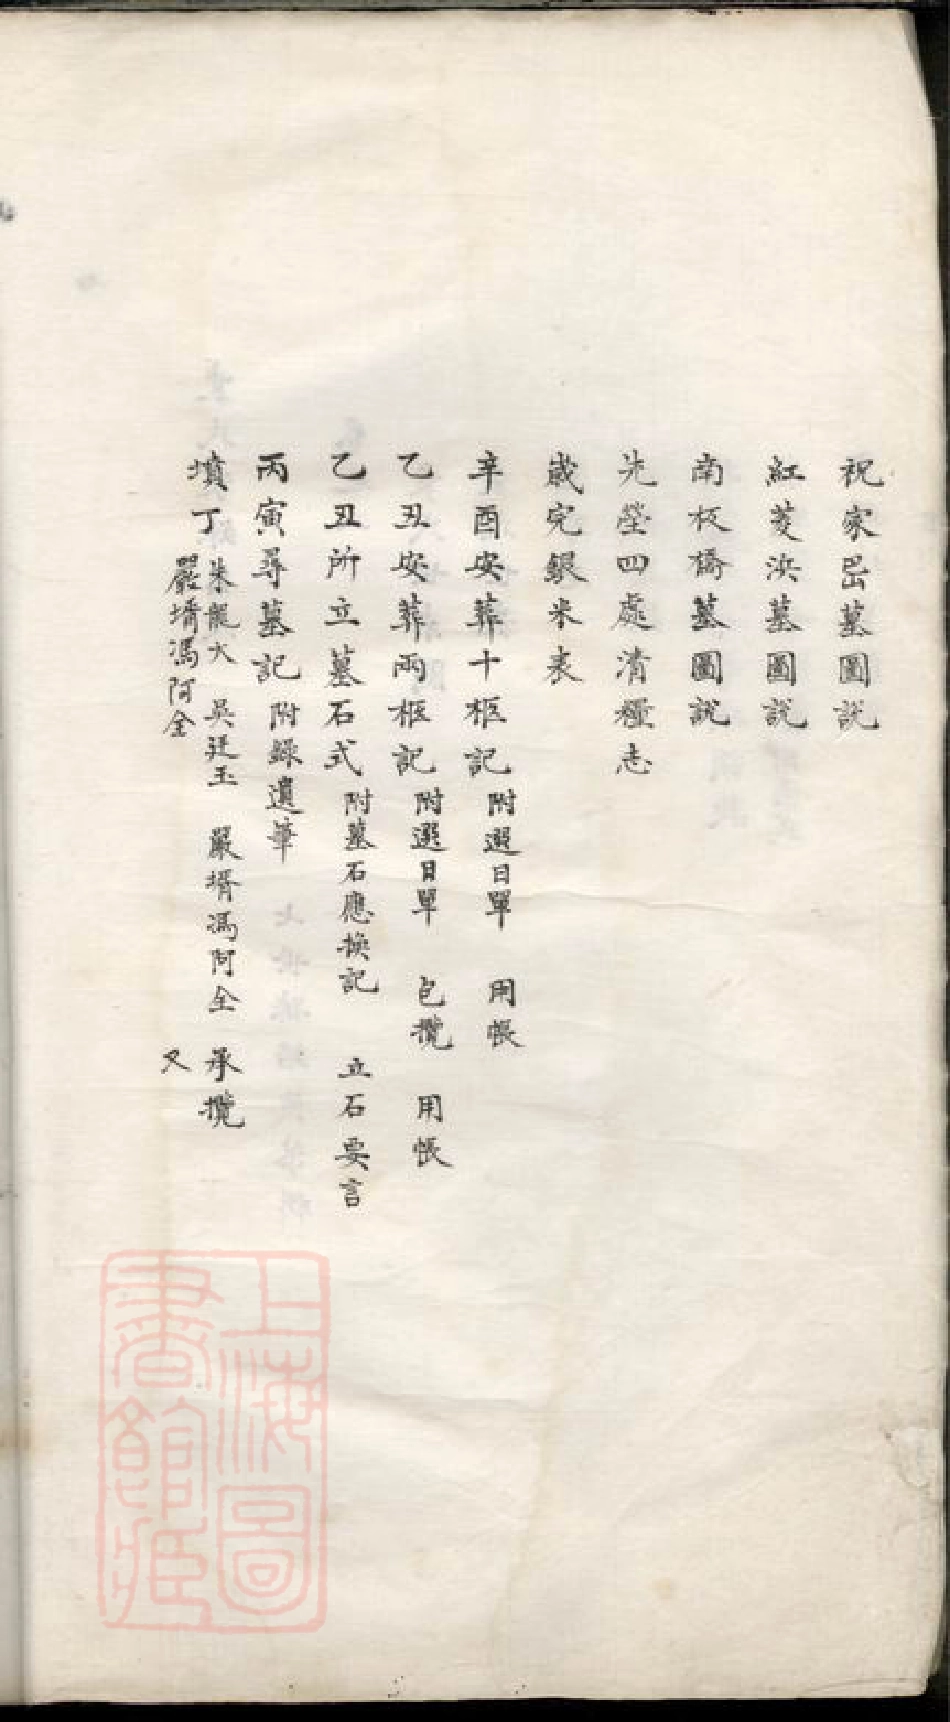 祝家岊墓圖說
紅菱浜墓圖說
南板橋墓圖說
先塋四處清糧志
歲完銀米表
辛酉安葬十柩記 附選日單 用帳
乙丑安葬兩柩記 附選日單 包攬 用帳
乙丑所立墓石式 附墓石應換記 立石要言
丙寅尋墓記 附錄遺筆
墳丁 朱龍大 吳廷玉 嚴壻馮阿全 承攬
嚴壻馮阿全 又
上海圖
書館藏